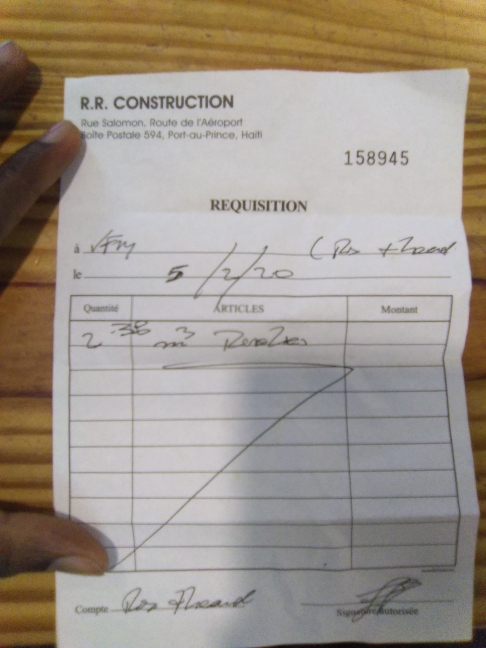 R.R. CONSTRUCTION
Rue Salomon, Route de l'Aéroport
Boîte Postale 594, Port-au-Prince, Haiti
158945
REQUISITION
à
le 5/2/20
Quantité ARTICLES Montant
2 38 m3
Compte
Signature Autorisée